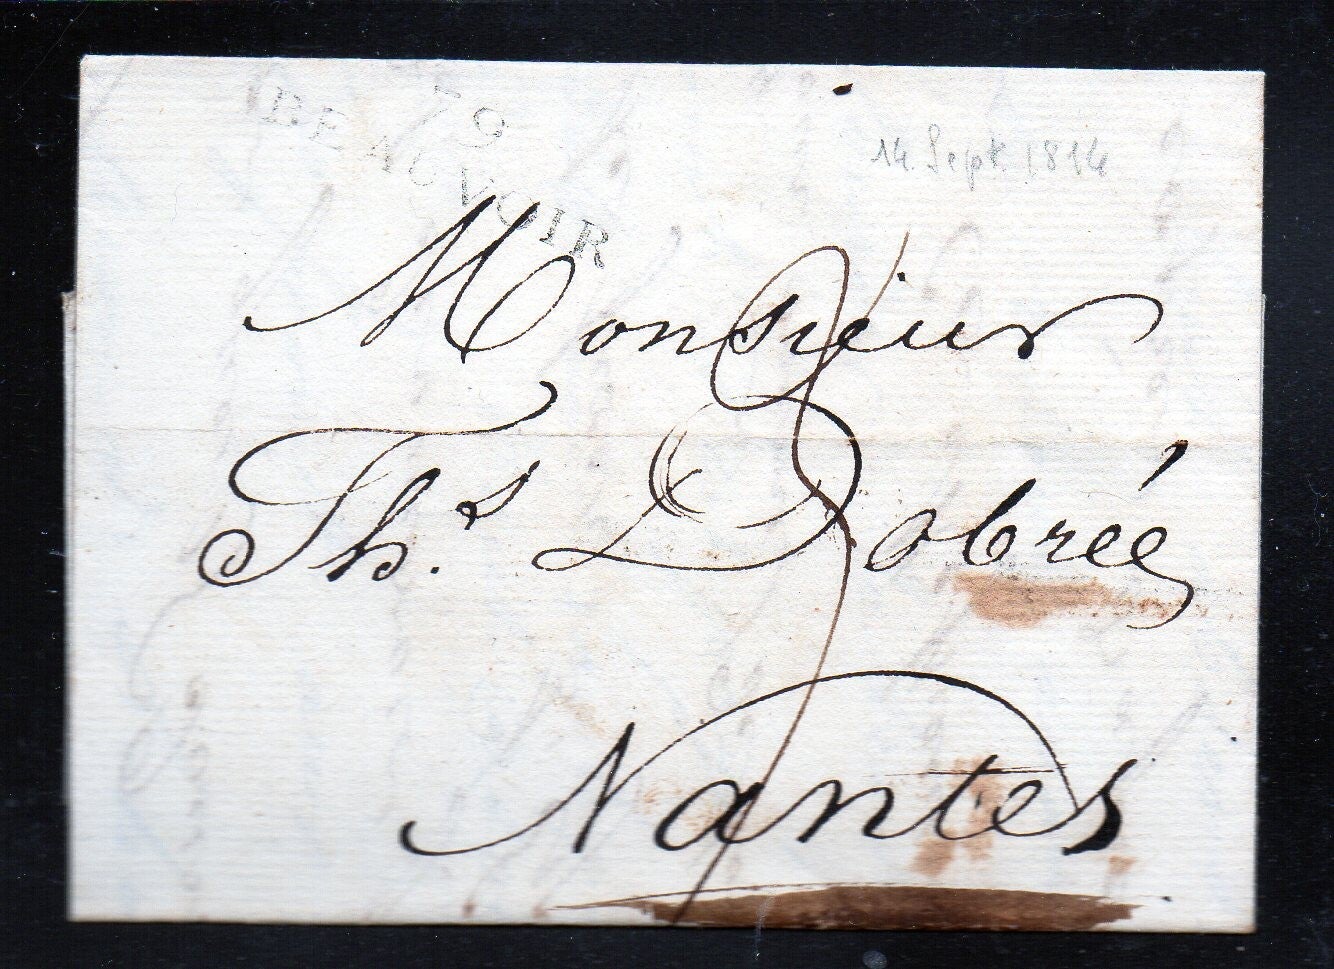 79
BEAUVOIR
14 Sept 1814
Monsieur
Ths. Dobrée
Nantes